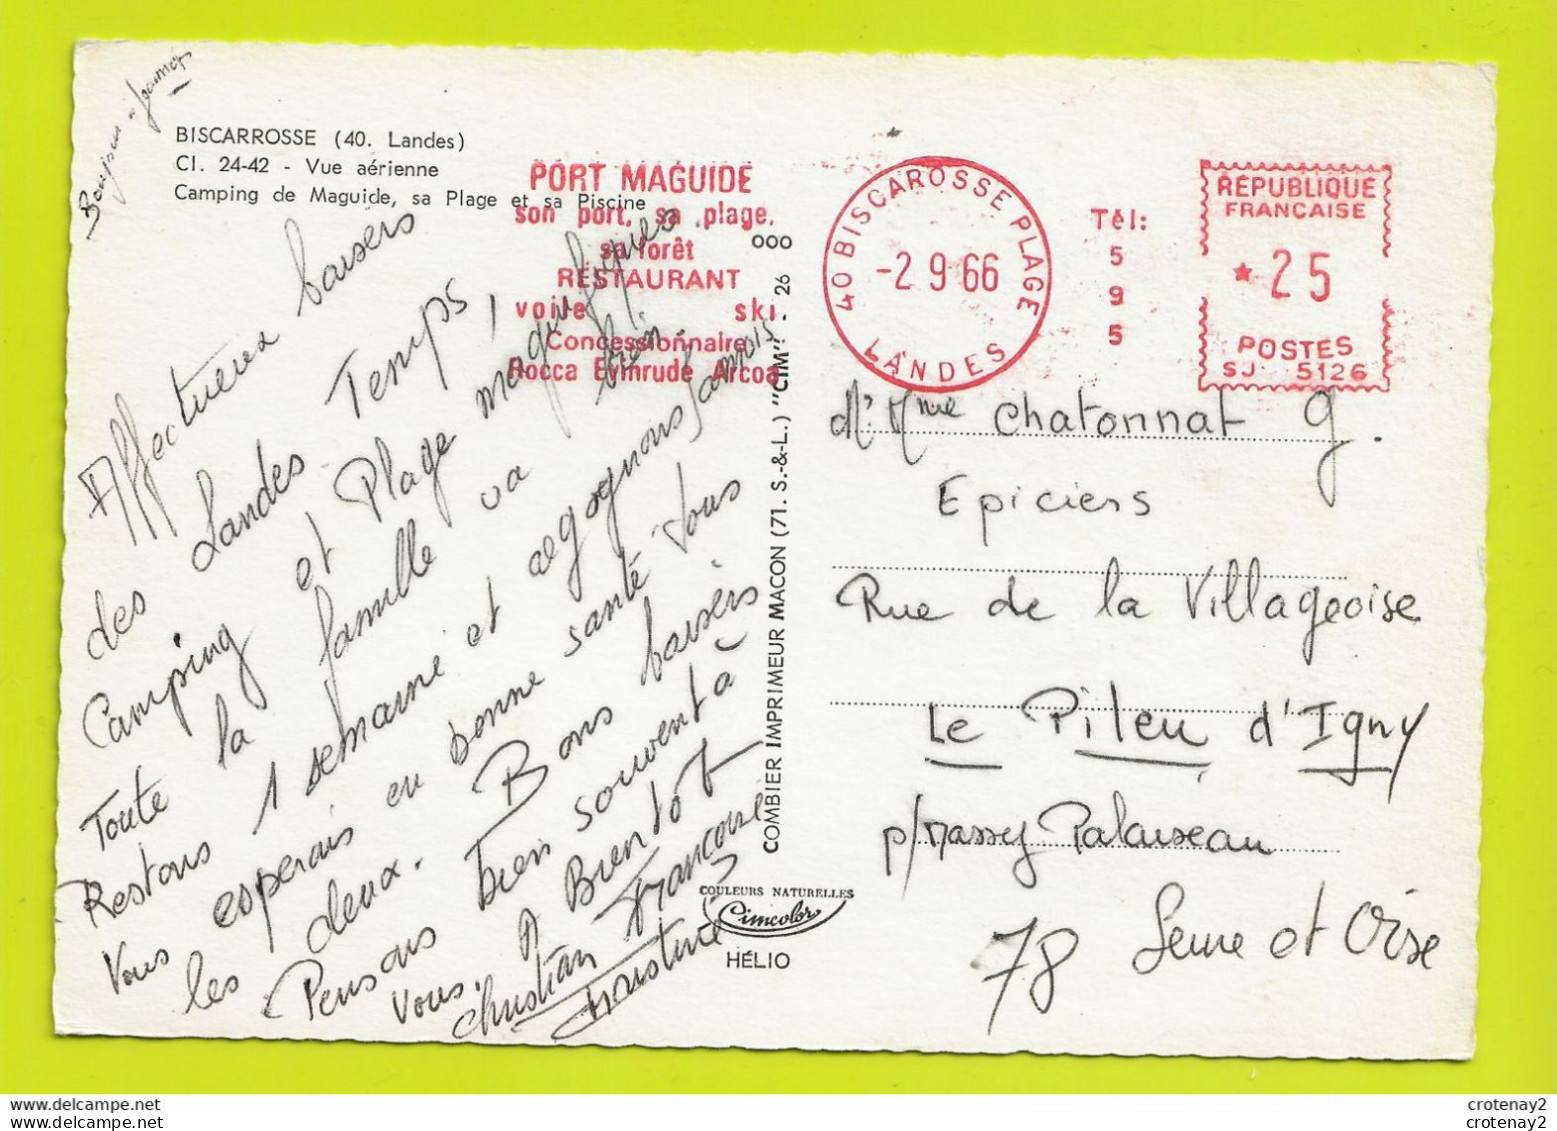 BISCARROSSE (40. Landes)
Cl. 24-42 - Vue aérienne
Camping de Maguide, sa Plage et sa Piscine
PORT MAGUIDE
son port, sa plage,
sa forêt
RESTAURANT
voile ski
Concessionnaire
Rocca Evinrude Arcoa
40 BISCAROSSE PLAGE
-2 9 66
LANDES
Tél:
5
9
5
REPUBLIQUE
FRANCAISE
* 25
POSTES
SJ 5126
Affectueux baisers
des Landes Temps,
Camping et Plage magnifiques,
Toute la famille va bien
Restons 1 semaine et
Vous esperais en bonne santé tous
les deux. Bons baisers
Pensons bien souvent à
vous. A Bientôt
Christian Francoise
Christine
M. Mme Chatonnat G.
Epiciers
Rue de la Villageoise
Le Pileu d'Igny
p/Massy Palaiseau
78 Seine et Oise
COMBIER IMPRIMEUR MACON (71. S.-&-L.) "CIM" - 26
000
COULEURS NATURELLES
Cimcolor
HÉLIO
crotenay2
crotenay2
www.delcampe.net
crotenay2
www.delcampe.net
crotenay2